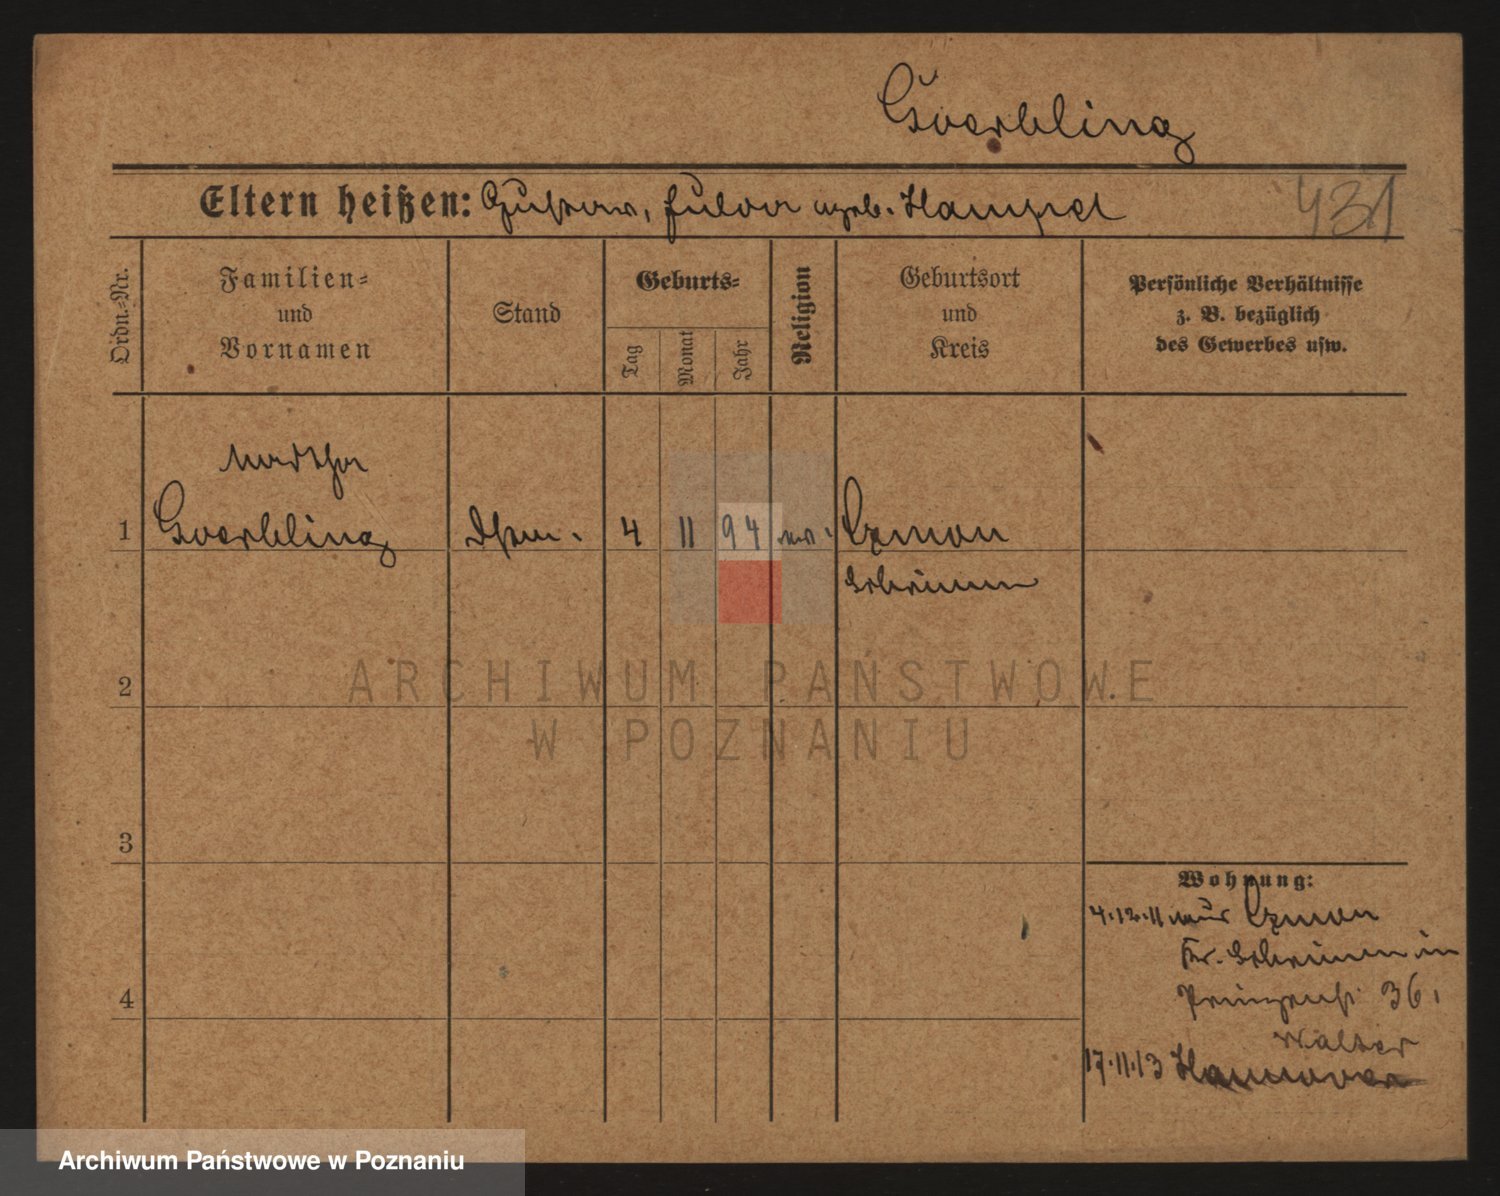 Goerbling
Eltern heißen: Gustav, Hulda geb. Hampel
431
Ordn.-Nr.
Familien-
und
Vornamen
Stand
Geburts-
Tag
Monat
Jahr
Religion
Geburtsort
und
Kreis
Persönliche Verhältnisse
z. B. bezüglich
des Gewerbes usw.
Martha
1 Goerbling 4 11 94
Schrimm
2
ARCHIWUM PAŃSTWOWE
W POZNANIU
3
4
Wohnung:
4.12.11 aus
Kr. Schrimm in
Prinzenstr. 36,
Walter
17.11.13 Hannover
Archiwum Państwowe w Poznaniu